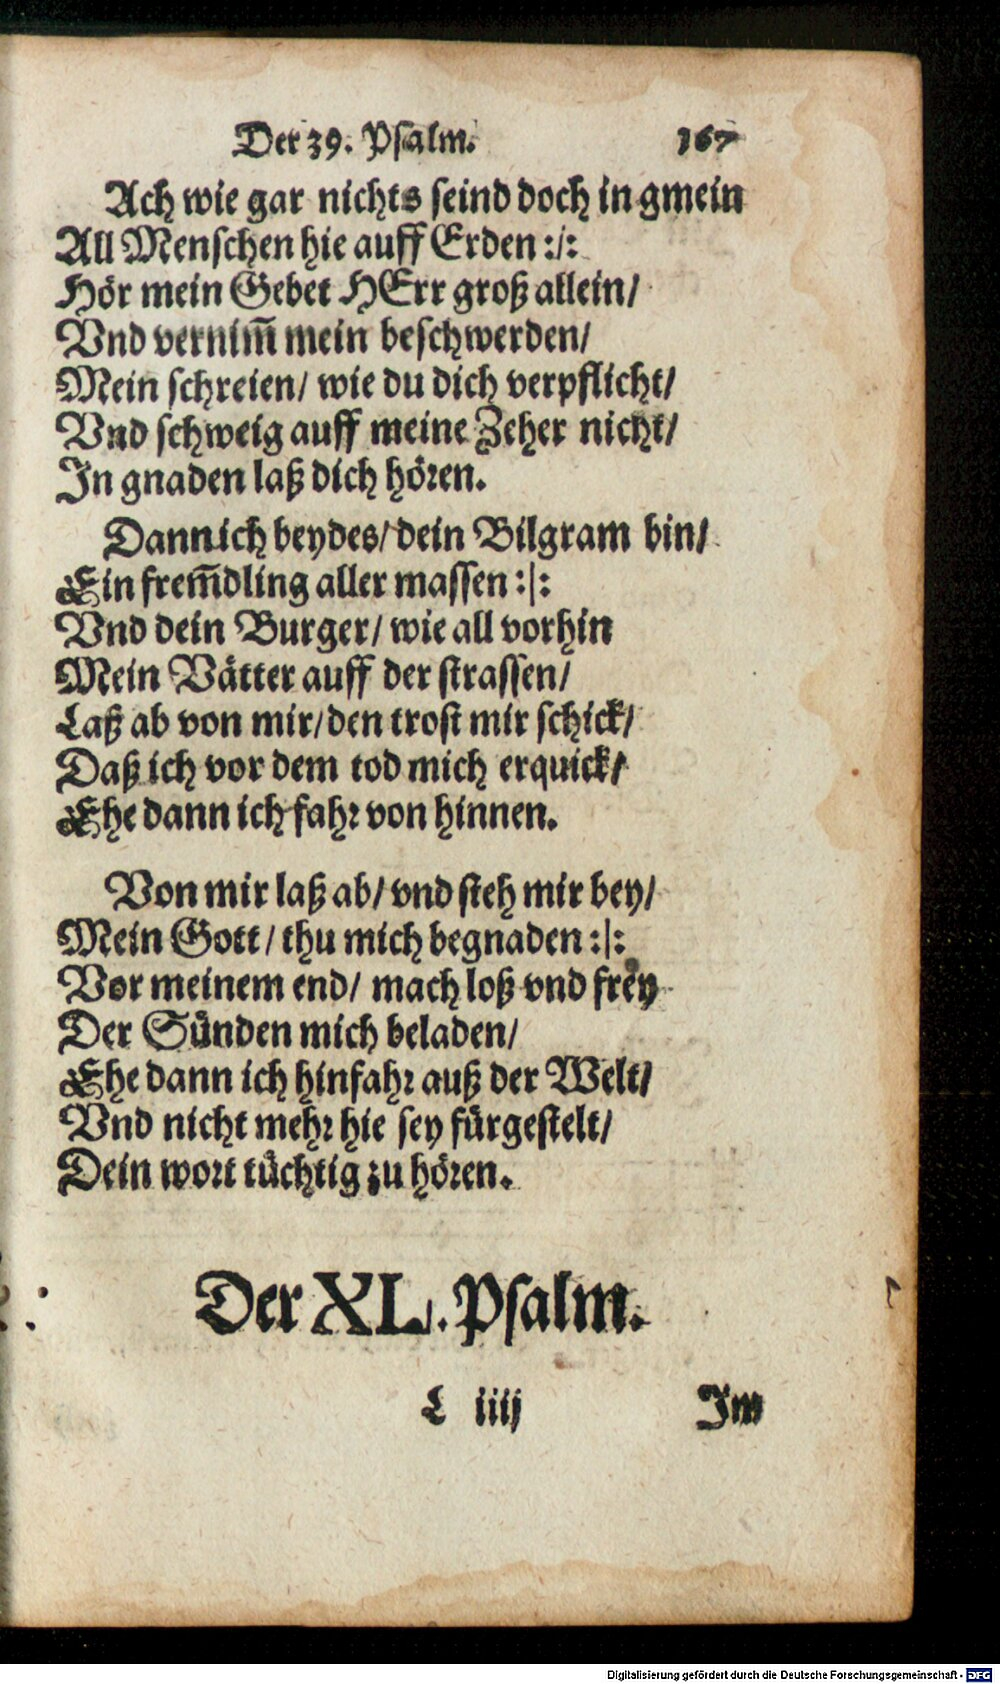 Der 39. Psalm. 167
Ach wie gar nichts seind doch in gmein
All Menschen hie auff Erden :/:
Hör mein Gebet HErr groß allein/
Vnd vernim̃ mein beschwerden/
Mein schreien/ wie du dich verpflicht/
Vnd schweig auff meine Zeher nicht/
In gnaden laß dich hören.
Dann ich beydes/ dein Bilgram bin/
Ein frem̃dling aller massen :|:
Vnd dein Burger/ wie all vorhin
Mein Vätter auff der strassen/
Laß ab von mir/ den trost mir schick/
Daß ich vor dem tod mich erquick/
Ehe dann ich fahr von hinnen.
Von mir laß ab/ vnd steh mir bey/
Mein Gott/ thu mich begnaden :|:
Vor meinem end/ mach loß vnd frey
Der Sünden mich beladen/
Ehe dann ich hinfahr auß der Welt/
Vnd nicht mehr hie sey fürgestelt/
Dein wort tüchtig zu hören.
Der XL. Psalm.
L iiij Im
Digitalisierung gefördert durch die Deutsche Forschungsgemeinschaft - DFG